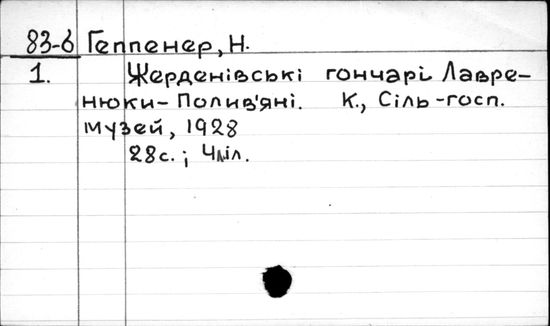 83-6 Геппенер, Н.
1. Жерденівські гончарі Лавре-
нюки-Полив'яні. К., Сіль-госп.
музей, 1928
28с.; 4 міл.